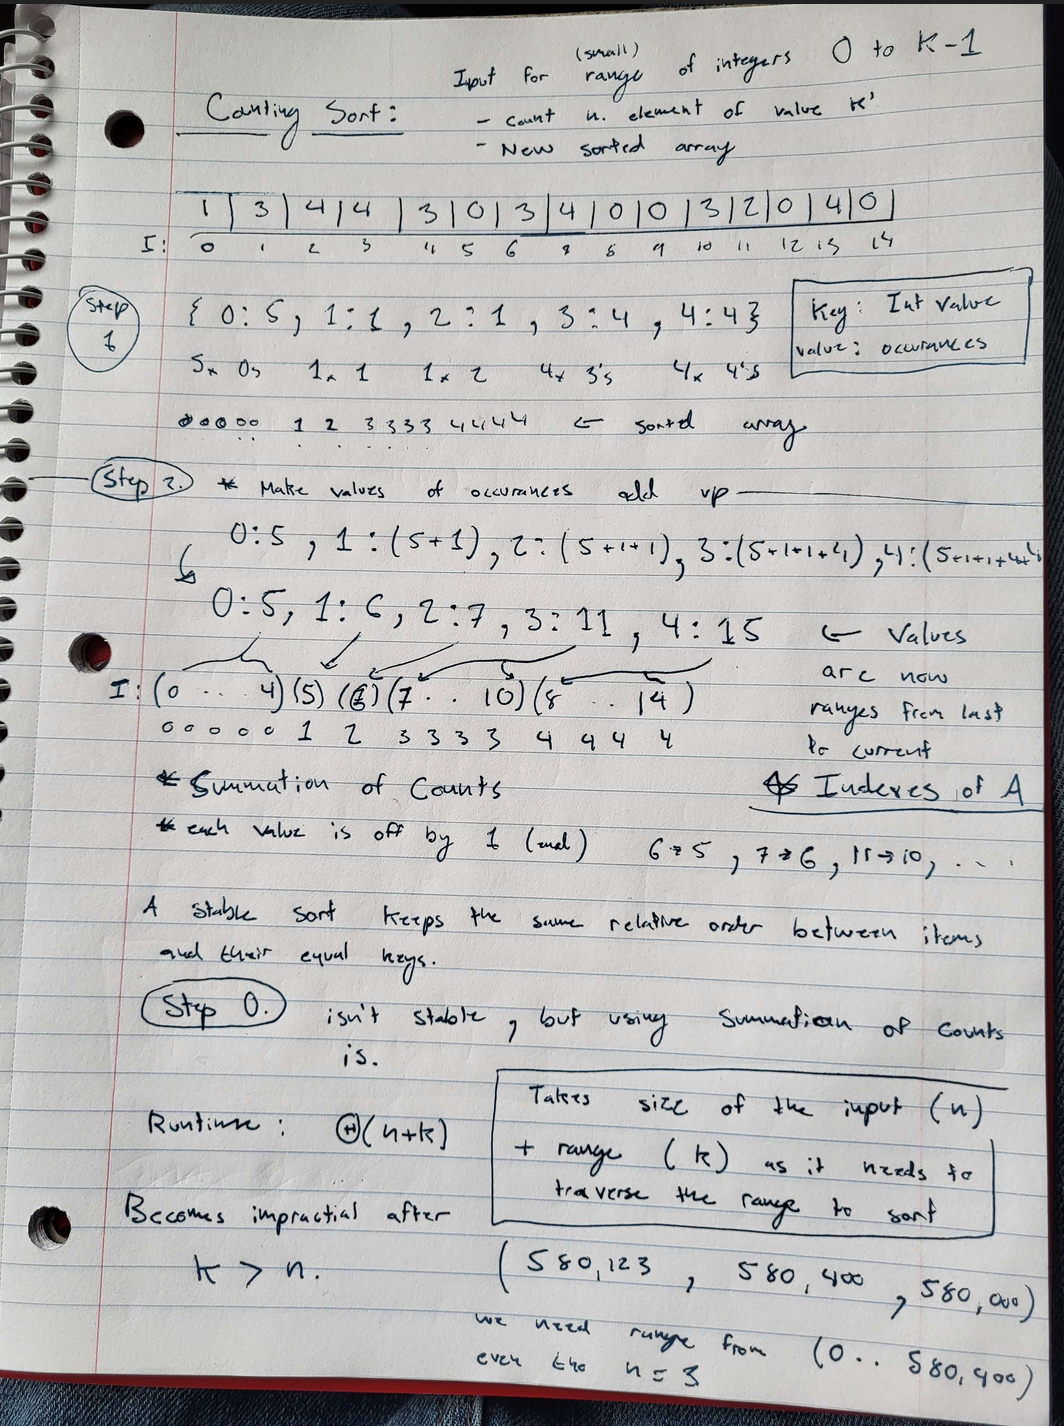 (small)
Input for range of integers 0 to K-1
Counting Sort:
- count n. element of value k'
- New sorted array
1 | 3 | 4 | 4 | 3 | 0 | 3 | 4 | 0 | 0 | 3 | 2 | 0 | 4 | 0 |
I: 0 1 2 3 4 5 6 8 8 9 10 11 12 13 14
Step 1
{ 0:5, 1:1, 2:1, 3:4, 4:4}
Key: Int value
value: occurances
5x 0s 1x 1 1x 2 4x 3's 4x 4's
00000 1 2 3333 4444 ← sorted array
Step 2. * Make values of occurances add up
0:5, 1:(5+1), 2:(5+1+1), 3:(5+1+1+4), 4:(5+1+1+4+4
0:5, 1:6, 2:7, 3:11, 4:15 ← Values
are now
ranges from last
to current
* Indexes of A
I: (0 .. 4) (5) (6) (7 .. 10) (8 .. 14)
0 0 0 0 0 1 2 3 3 3 3 4 4 4 4
* Summation of Counts
* each value is off by 1 (end) 6→5, 7→6, 11→10, ...
A stable sort keeps the same relative order between items
and their equal keys.
Step 0. isn't stable, but using Summation of Counts
is.
Runtime: Θ(n+k)
Takes size of the input (n)
+ range (k) as it needs to
traverse the range to sort
Becomes impractial after
k > n.
(580,123, 580,400, 580,000)
we need range from (0.. 580,400)
even tho n = 3